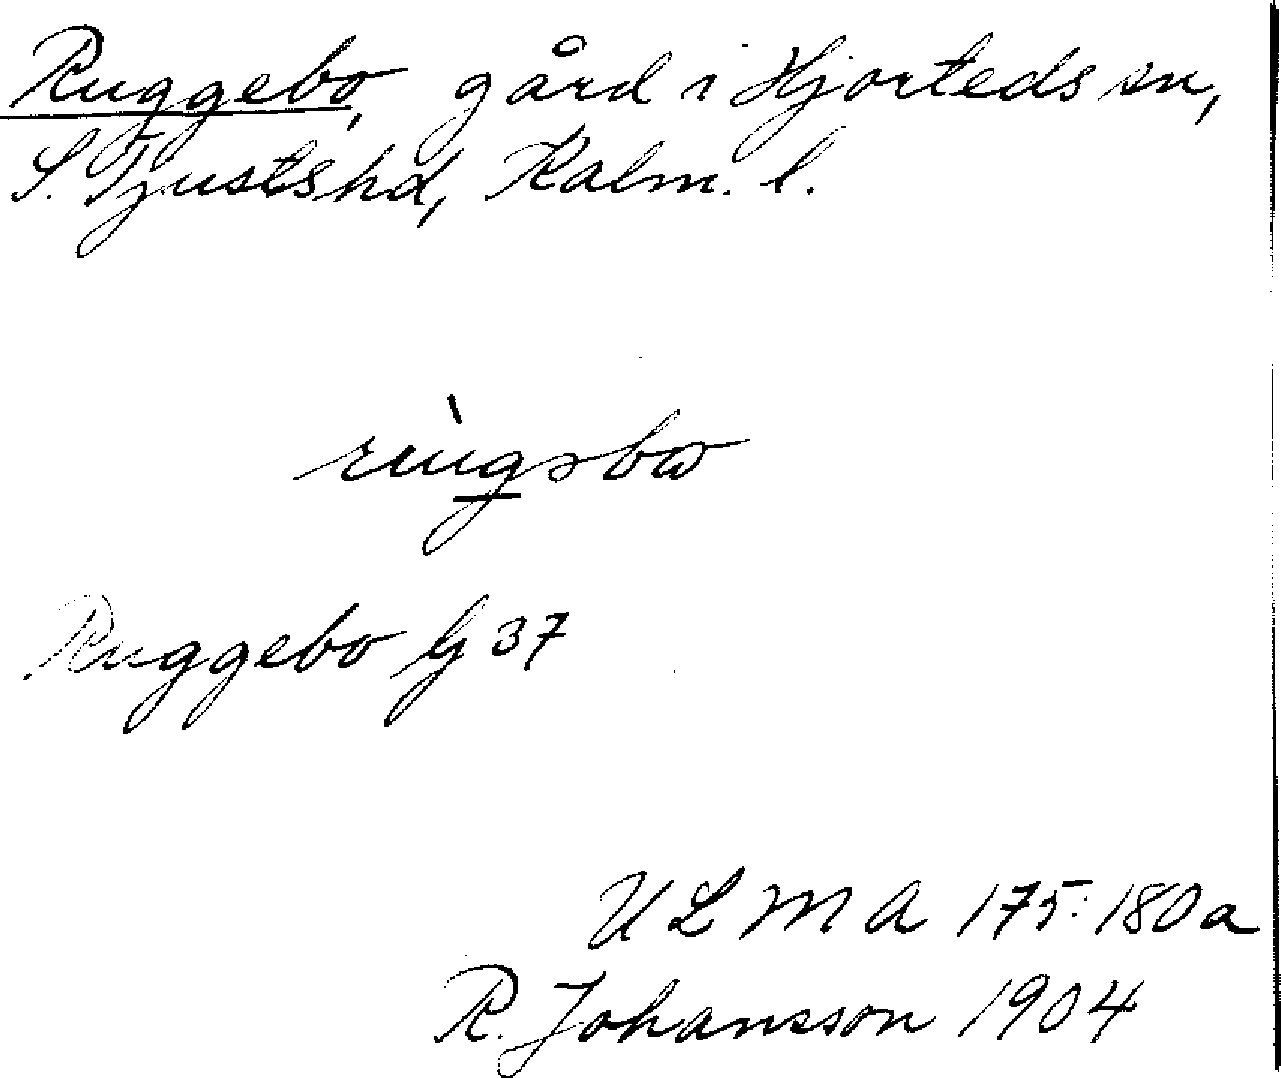 Ruggebo, gård i Hjorteds sn,
S. Tjusts hd, Kalm. l.
Ruggebo G 37
U L M A 175:180a
R. Johansson 1904